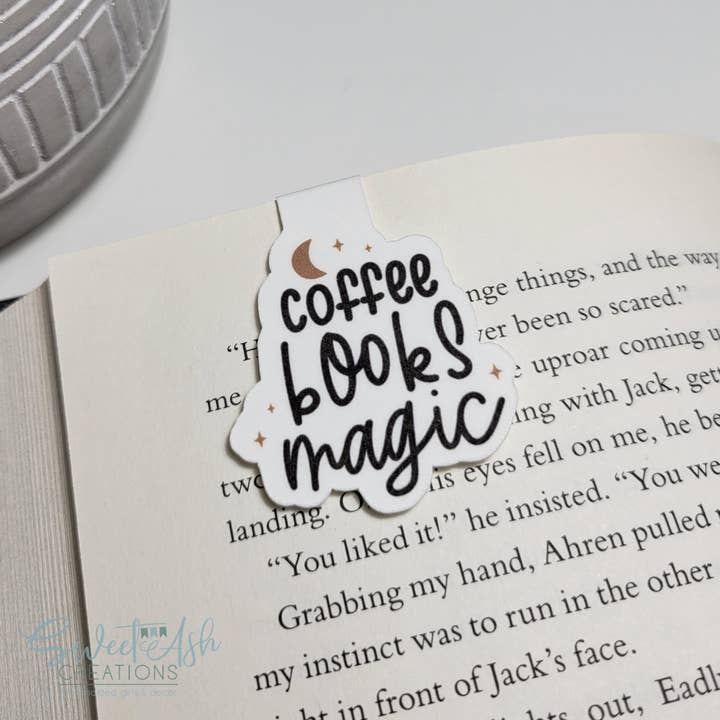 coffee
books
magic
nge things, and the way
"H
er been so scared."
me
uproar coming u
ing with Jack, gett
two
is eyes fell on me, he be
landing. O
he insisted. "You we
"You liked it!"
Grabbing my hand, Ahren pulled
my instinct was to run in the other
ht in front of Jack's face.
hts out, Eadl
Sweet Ash
CREATIONS